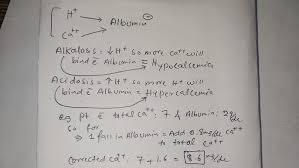 H⁺ → Albumin ⊖
Ca⁺⁺
Alkalosis = ↓H⁺ so more Ca⁺⁺ will
bind c̄ Albumin = Hypocalcemia
Acidosis = ↑H⁺ so more H⁺ will
bind c̄ Albumin = Hypercalcemia
eg pt c̄ total Ca⁺⁺: 7 & Albumin: 2
so for
⇒ 1 fall in Albumin = Add 0.8 Ca⁺⁺
to total Ca⁺⁺
corrected Ca⁺: 7 + 1.6 = 8.6